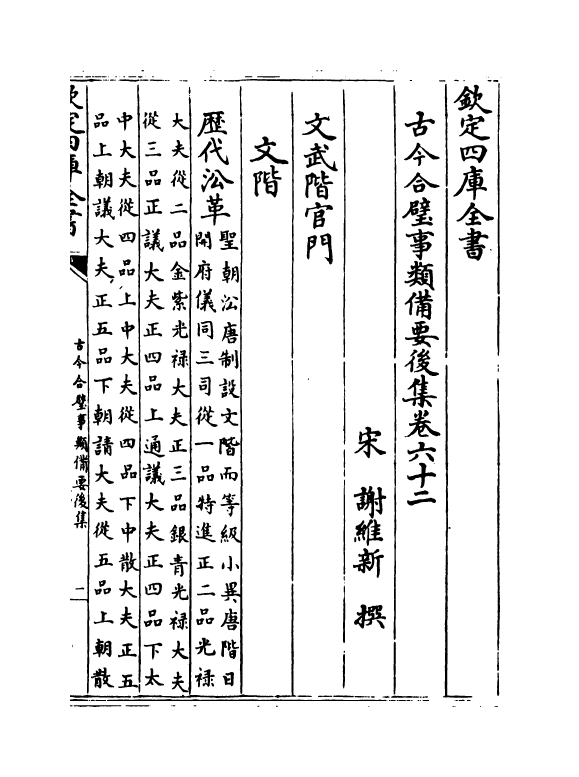 欽定四庫全書
古今合璧事類備要後集卷六十二
宋 謝維新 撰
文武階官門
文階
歷代沿革
聖朝沿唐制設文階而等級小異唐階日
開府儀同三司從一品特進正二品光禄
大夫從二品金紫光禄大夫正三品銀青光禄大夫
從三品正議大夫正四品上通議大夫正四品下太
中大夫從四品上中大夫從四品下中散大夫正五
品上朝議大夫正五品下朝請大夫從五品上朝散
欽定四庫全書
古今合璧事類備要後集
一